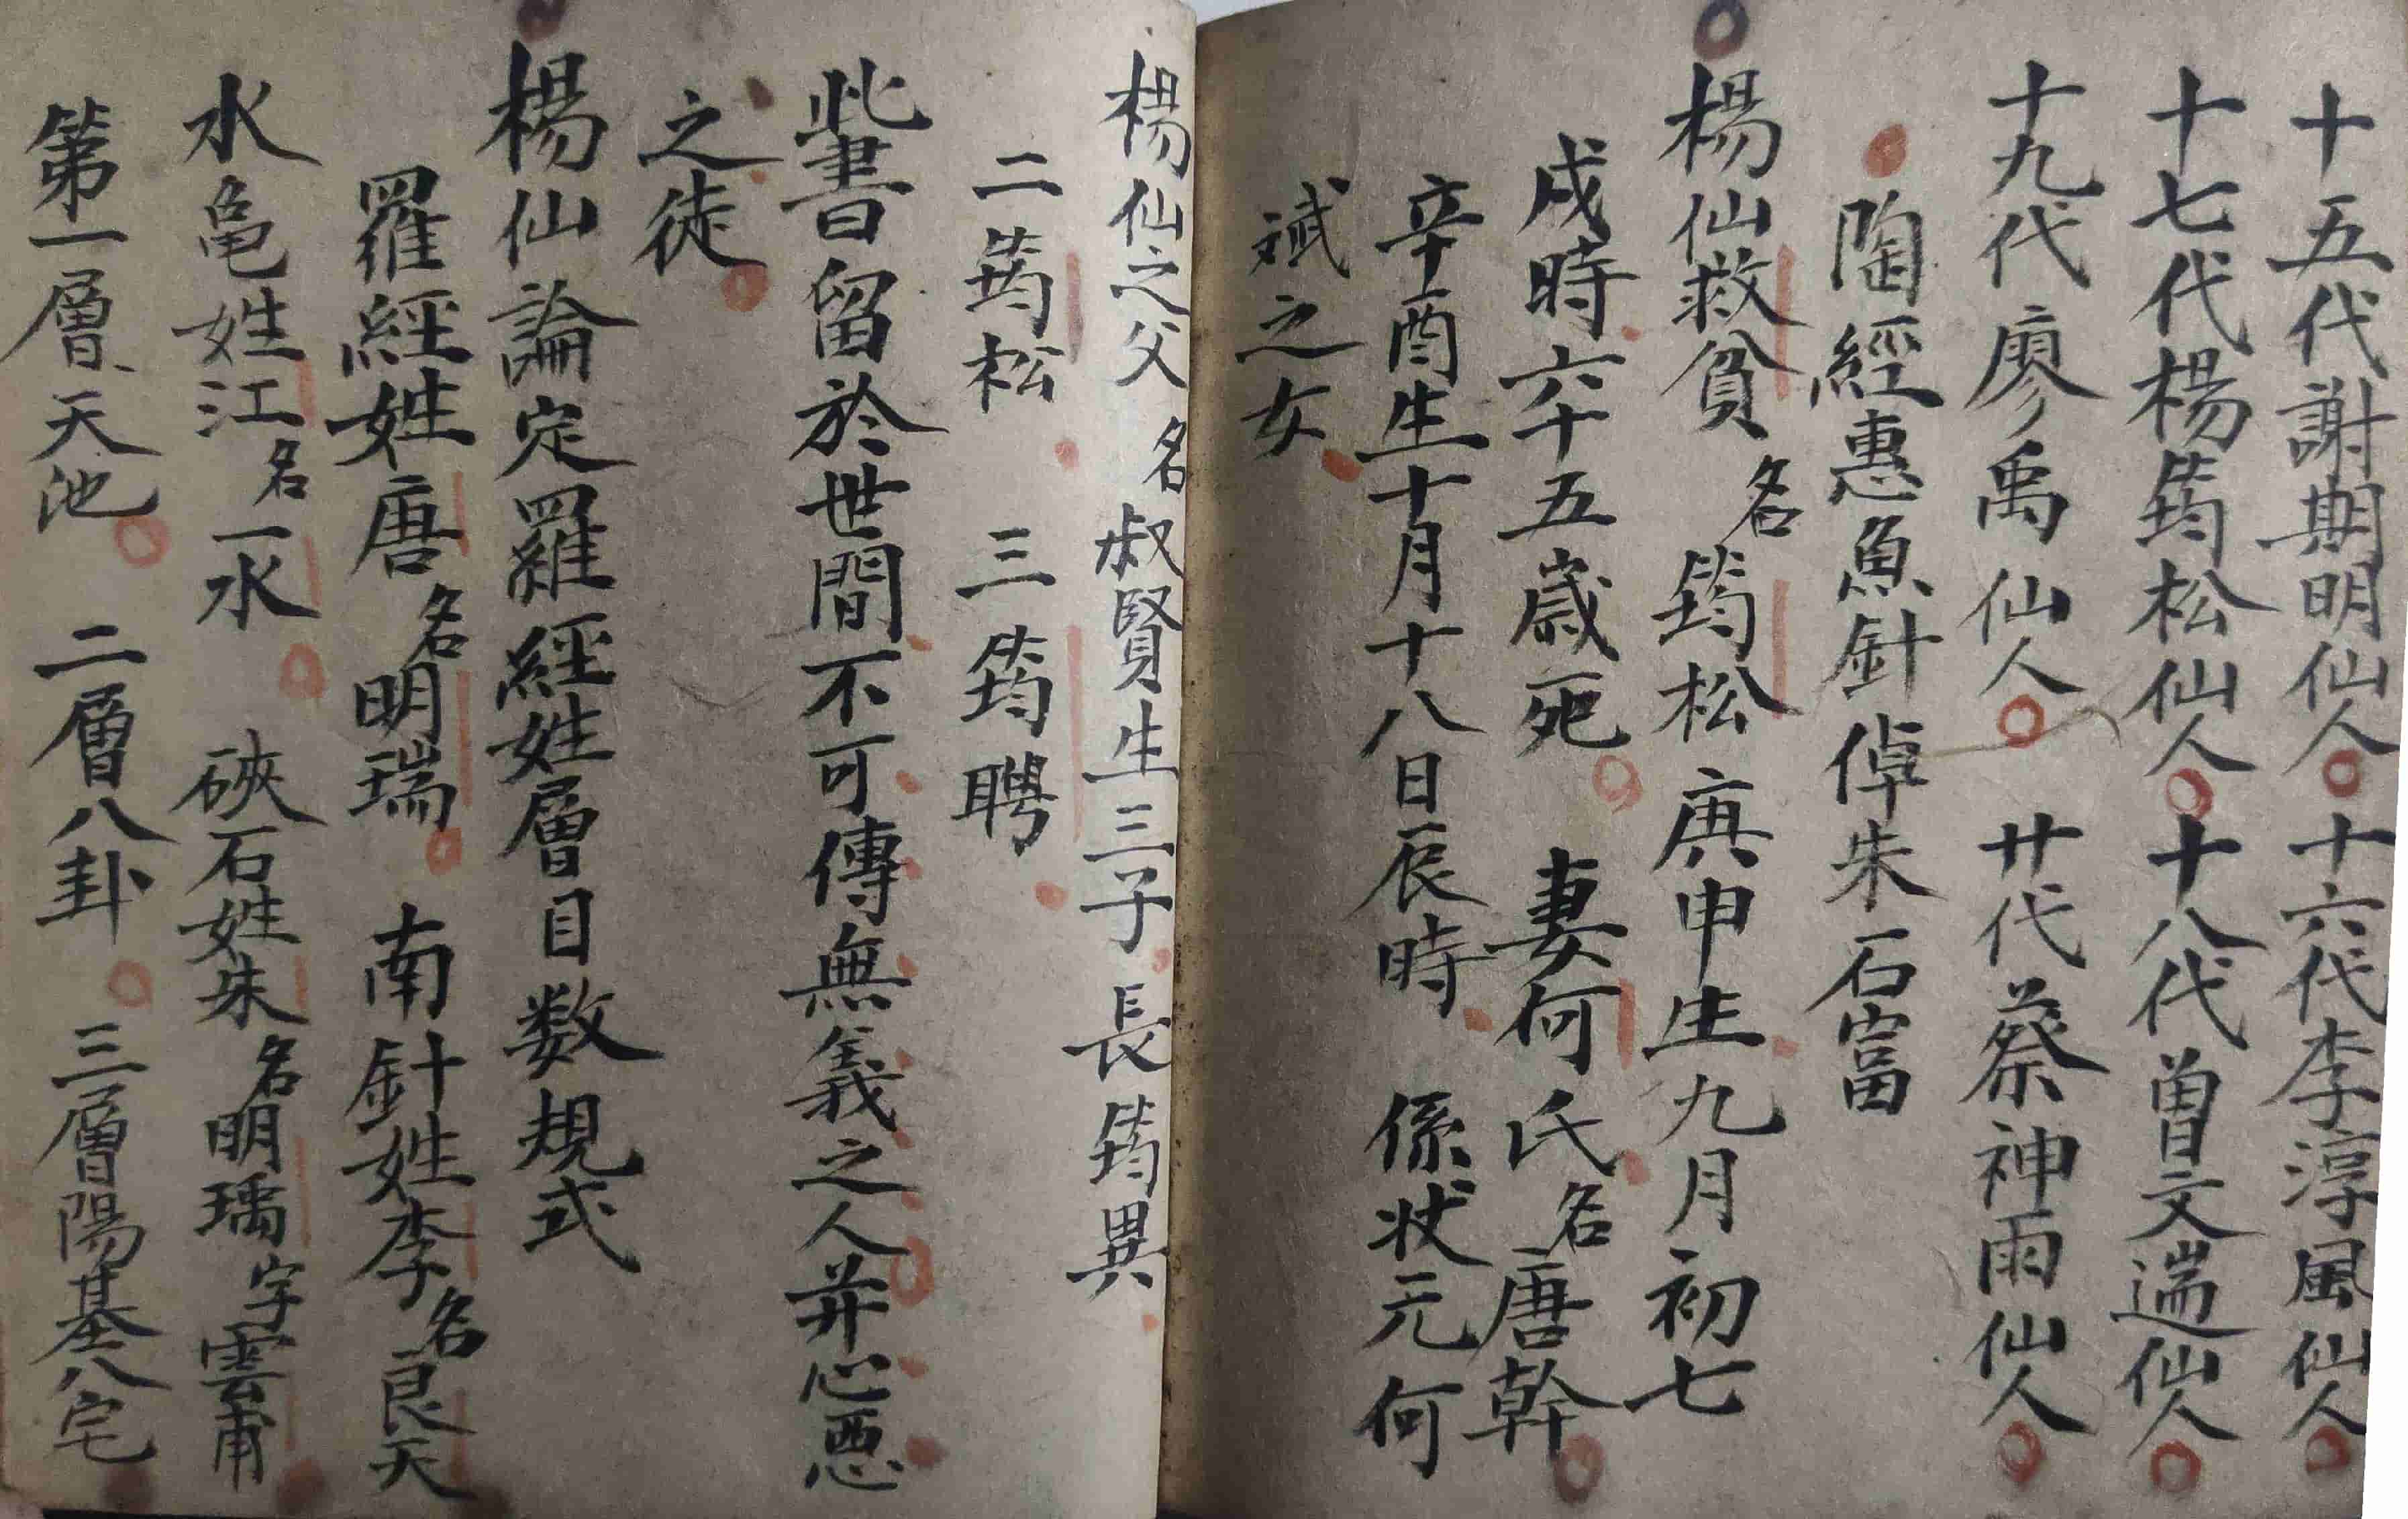 十五代謝期明仙人 十六代李淳風仙人
十七代楊筠松仙人 十八代曾文遄仙人
十九代廖禹仙人 廿代蔡神雨仙人
陶經惠魚針倬朱石富
楊仙救貧名筠松庚申生九月初七
戍時六十五歲死 妻何氏名唐幹
辛酉生十月十八日辰時 係状元何
斌之女
楊仙之父名叔賢生三子長筠異
二筠松 三筠聘
此書留於世間不可傳無義之人并心悪
之徒
楊仙論定羅經姓層目数規式
羅經姓唐名明瑞 南針姓李名良天
水亀姓江名一水 硤石姓朱名明瑀字雲甫
第一層天池 二層八卦 三層陽基八宅